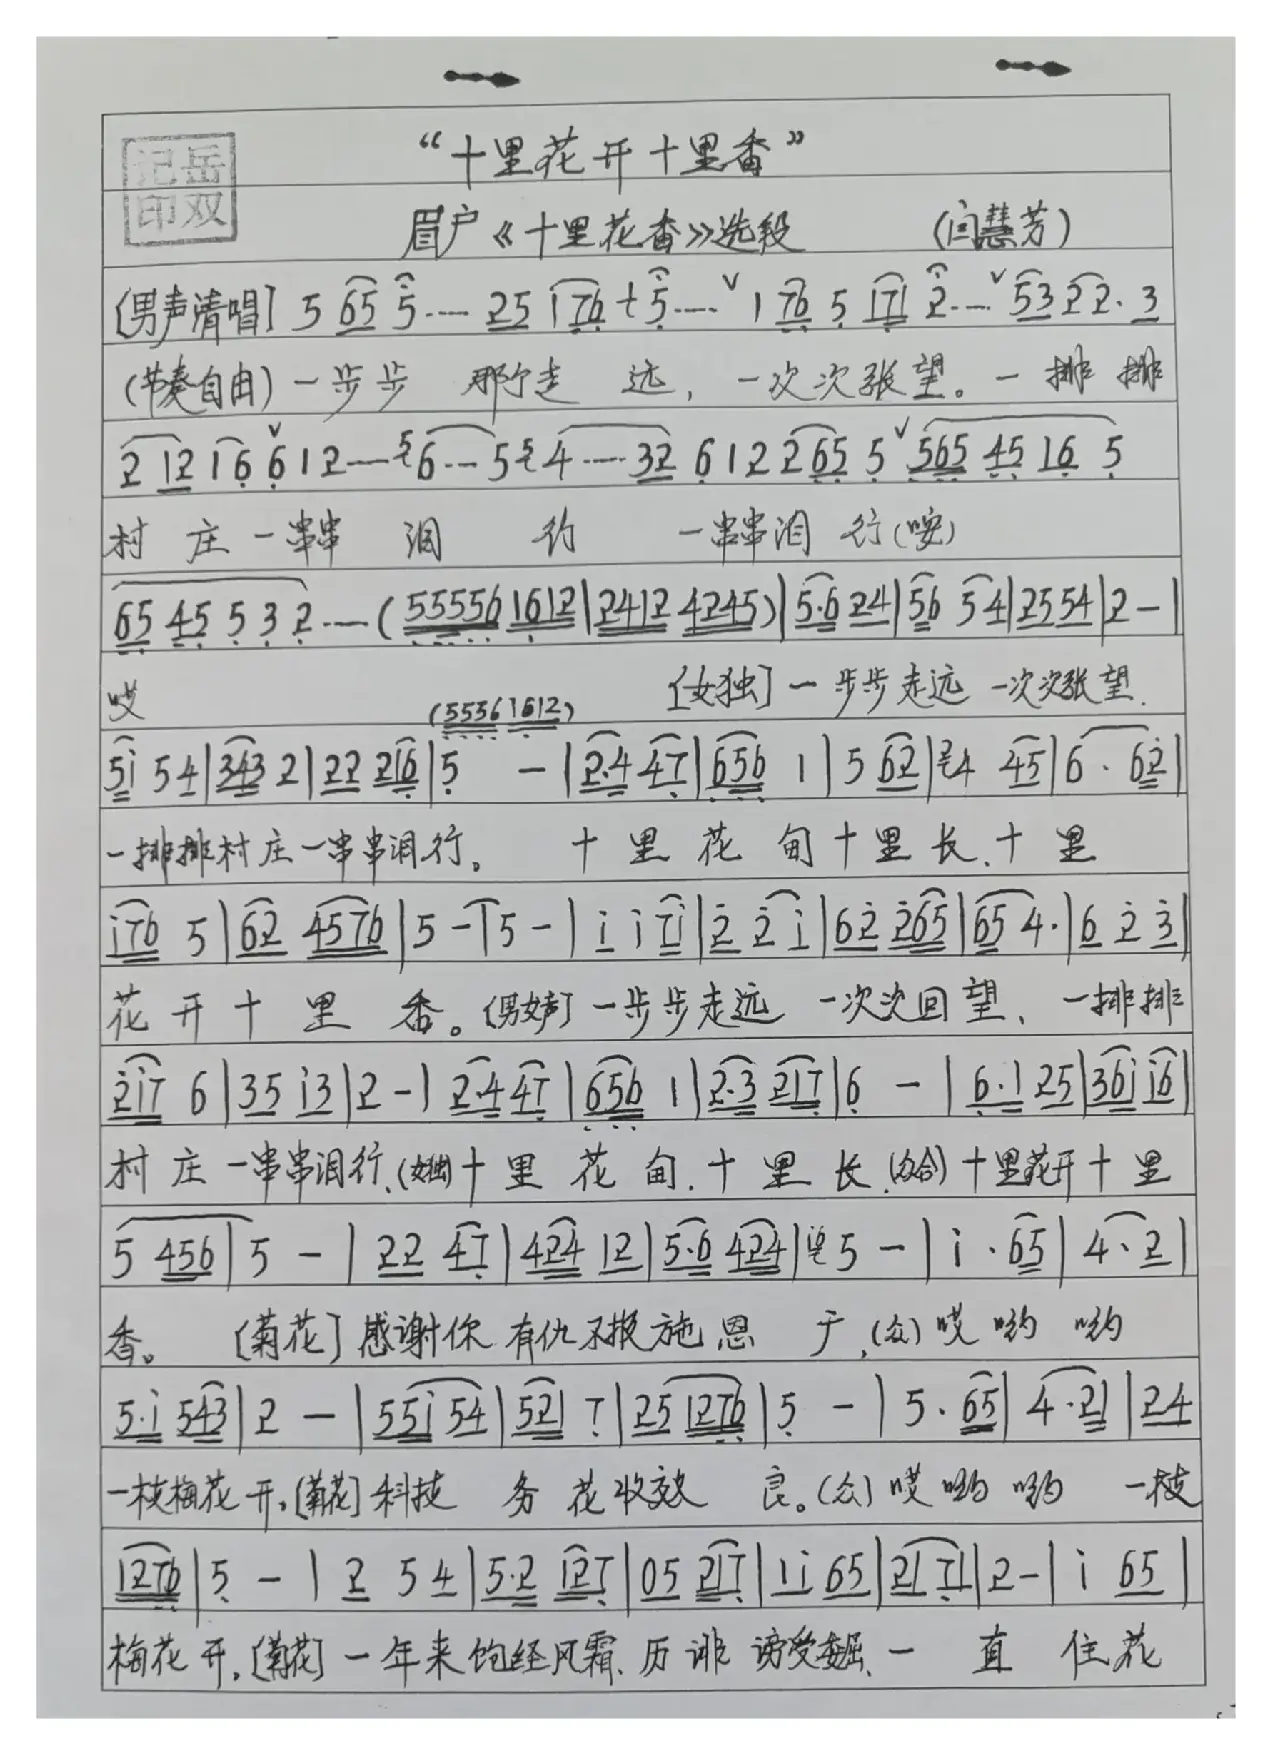 “十里花开十里香”
记岳
印双
眉户《十里花香》选段 (闫慧芳)
[男声清唱] 5 65 5.... 25 176 + 5.... ∨ 1 76 5 171 2.... ∨ 53 22. 3
(节奏自由) 一步步 那个走 远, 一次次张望。一 排 排
2 12 16 ∨ 6 12---- 6---- 5 4---- 32 6 1 2 265 5 ∨ 565 45 16 5
村 庄 一串串 泪 行 一串串泪 行(哎)
65 45 5 3 2---- (55556 1612|2412 4245)|5.6 24|56 54|2554|2-|
哎 [女独] 一步步走远 一次次张望.
(5556 1612)
5i 54|343 2|22 216|5 -|2.4 47|656 1|5 62|4 45|6. 62|
一排排村庄一串串泪行。 十里花甸十里长.十里
i76 5|62 4576|5-|5-|i i 7i|2 2 i|62 265|65 4.|6 2 3|
花开十里香。[男女声] 一步步走远 一次次回望, 一排排
2i7 6|35 i3|2-|2.4 47|656 1|2.3 217|6 -|6.1 25|36i i6|
村庄一串串泪行.(女独)十里花甸.十里长.(合)十里花开十里
5 456|5 -|22 47|424 12|5.6 424|5 -|i . 65|4. 2|
香。 [菊花] 感谢你有仇不报施恩 于,(众)哎哟 哟
5.i 543|2 -|55i 54|521 7|25 1276|5 -|5. 65|4.21|24
一枝梅花开,[菊花] 科技 务花收效 良。(众)哎哟哟 一枝
1276|5 -|2 54|5.2 127|05 217|1i 65|2171|2-|i 65|
梅花开,[菊花] 一年来饱经风霜.历诽谤受委屈.一直住花